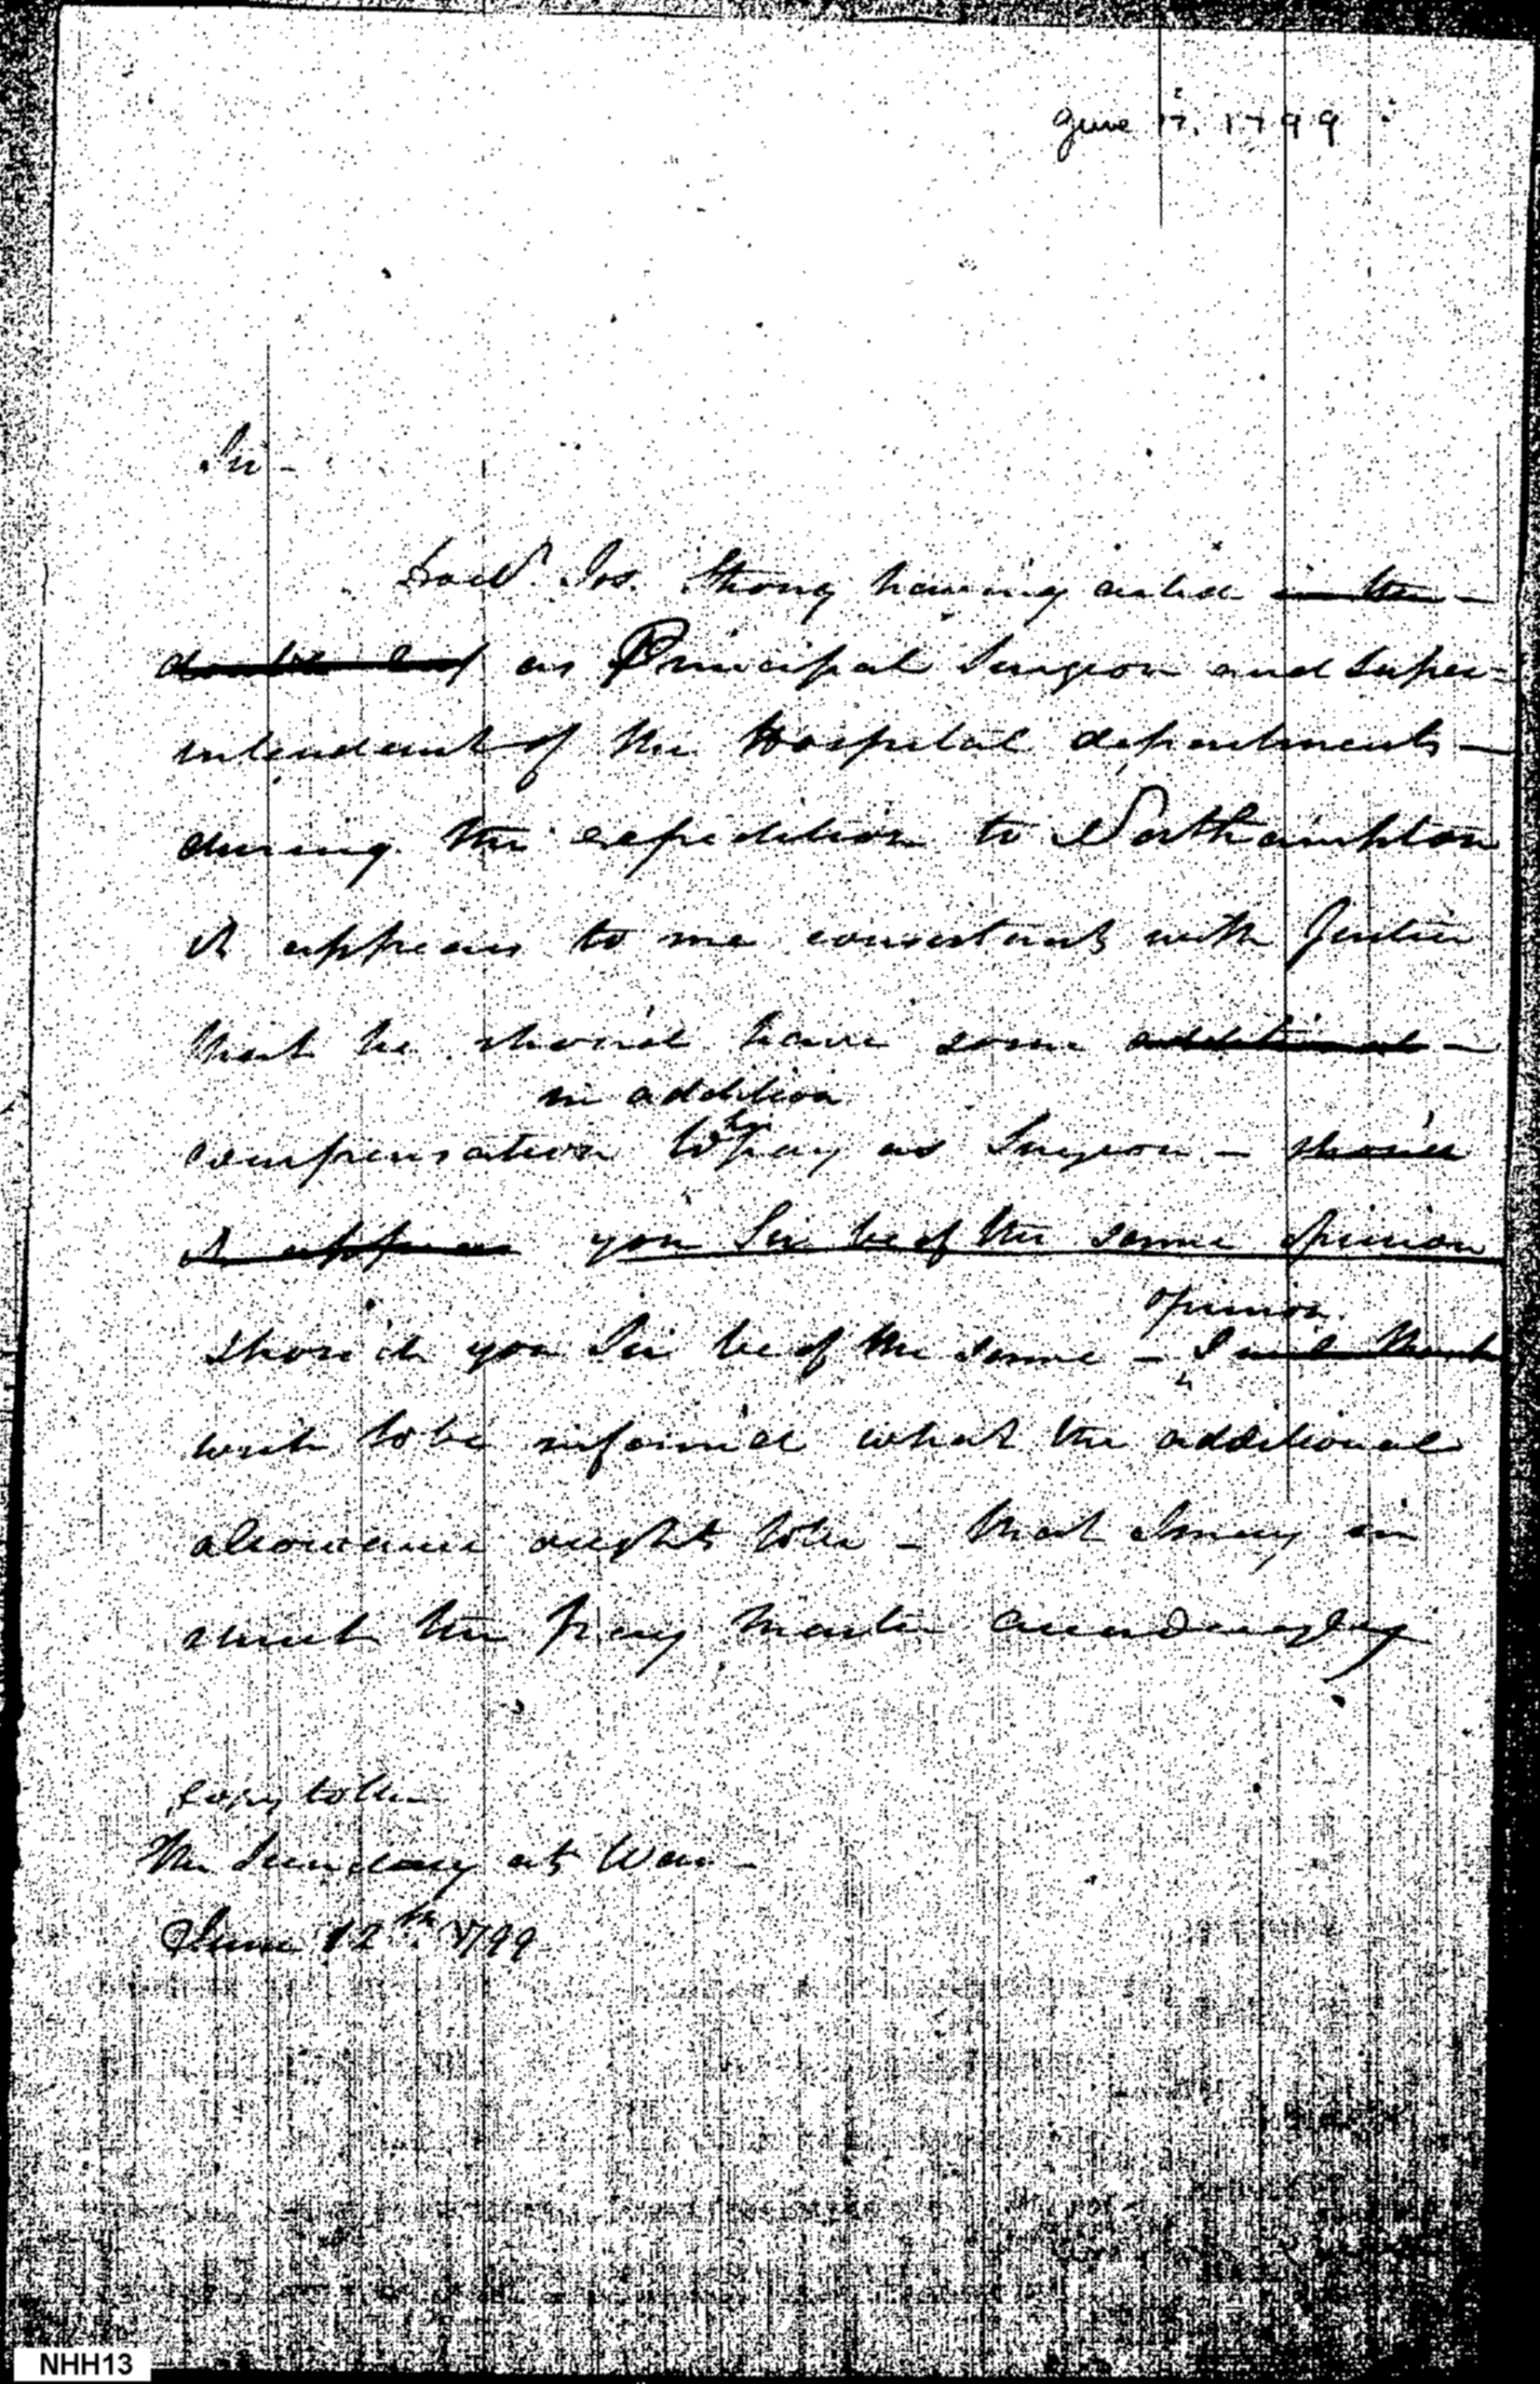 June 17. 1799
Sir -
Jos. Strong having acted in the -
double as Principal Surgeon and super=
intendant of the Hospital departments -
during the expedition to Northampton
it appears to me consistant with Justice
that he should have some additional -
in addition
compensation to his pay as Surgeon. - should
it appear you Sir be of the same opinion
opinion.
should you Sir be of the same - I
wish to be informed what the additional
allowance ought to be - that I may in
struct the Pay Master accordingly
Copy to the
the Secretary at War -
June 12th 1799
NHH13